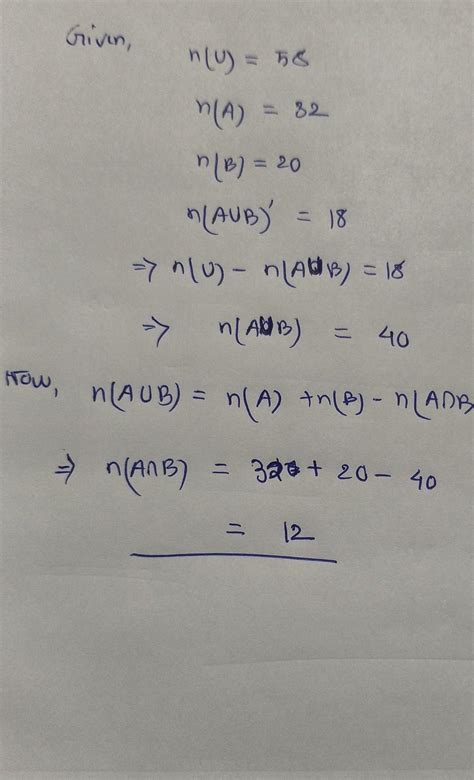 Given,
n(U) = 58
n(A) = 32
n(B) = 20
n(AUB)' = 18
⇒ n(U) - n(AUB) = 18
⇒ n(AUB) = 40
Now, n(AUB) = n(A) + n(B) - n(A∩B
⇒ n(A∩B) = 32 + 20 - 40
= 12